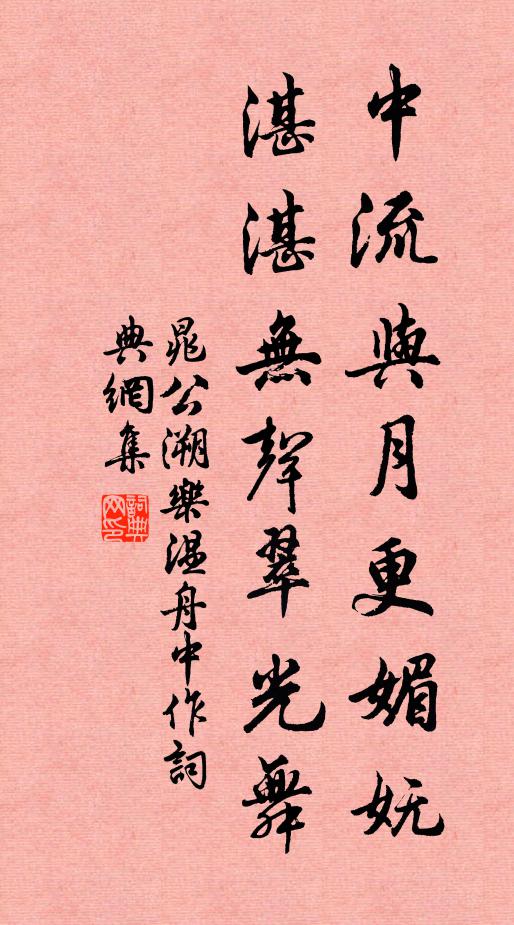 中流與月更媚妩
湛湛無聲翠光舞
晁公溯樂溫舟中作詞
典網集
詞典
网印